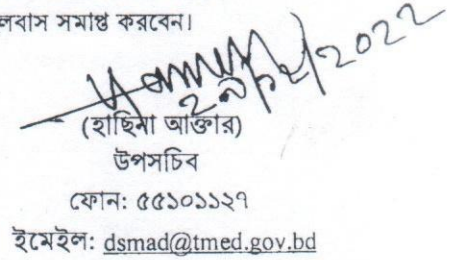 লবাস সমাপ্ত করবেন।
(হাছিনা আক্তার)
উপসচিব
ফোন: ৫৫১০১১২৭
ইমেইল: dsmad@tmed.gov.bd